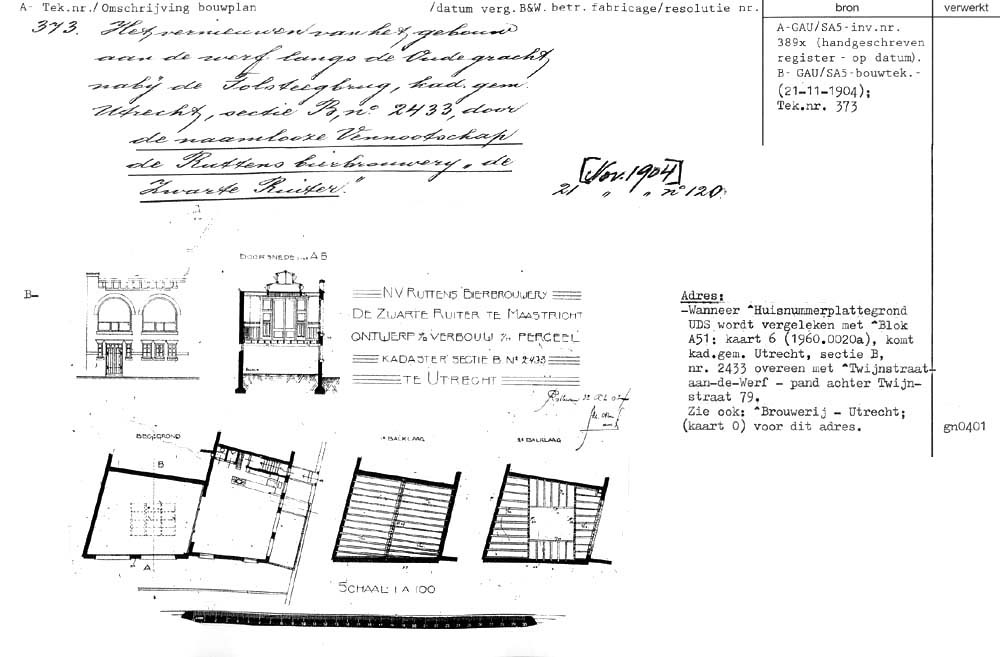 A- Tek.nr./Omschrijving bouwplan /datum verg.B&W. betr. fabricage/resolutie nr. bron verwerkt
373. Het vernieuwen van het gebouw
aan de werf langs de Oude gracht,
nabij de Tolsteegbrug, kad. gem.
Utrecht, sectie B, no 2433, door
de naamlooze Vennootschap
de Ruttens bierbrouwery "de
Zwarte Ruiter."
[Nov. 1904]
21 " " no 120.
A-GAU/SA5-inv.nr.
389x (handgeschreven
register - op datum).
B- GAU/SA5-bouwtek.-
(21-11-1904);
Tek.nr. 373
B-
DOORSNEDE AB
N.V. RUTTENS' BIERBROUWERY
DE ZWARTE RUITER TE MAASTRICHT
ONTWERP V/D VERBOUW V/H PERCEEL
KADASTER SECTIE B No 2433
TE UTRECHT
Adres:
-Wanneer ^Huisnummerplattegrond
UDS wordt vergeleken met ^Blok
A51: kaart 6 (1960.0020a), komt
kad.gem. Utrecht, sectie B,
nr. 2433 overeen met ^Twijnstraat-
aan-de-Werf - pand achter Twijn-
straat 79.
Zie ook: ^Brouwerij - Utrecht;
(kaart 0) voor dit adres.
gn0401
BEGAGROND
1e BALKLAAG
2e BALKLAAG
B
A
SCHAAL 1 A 100